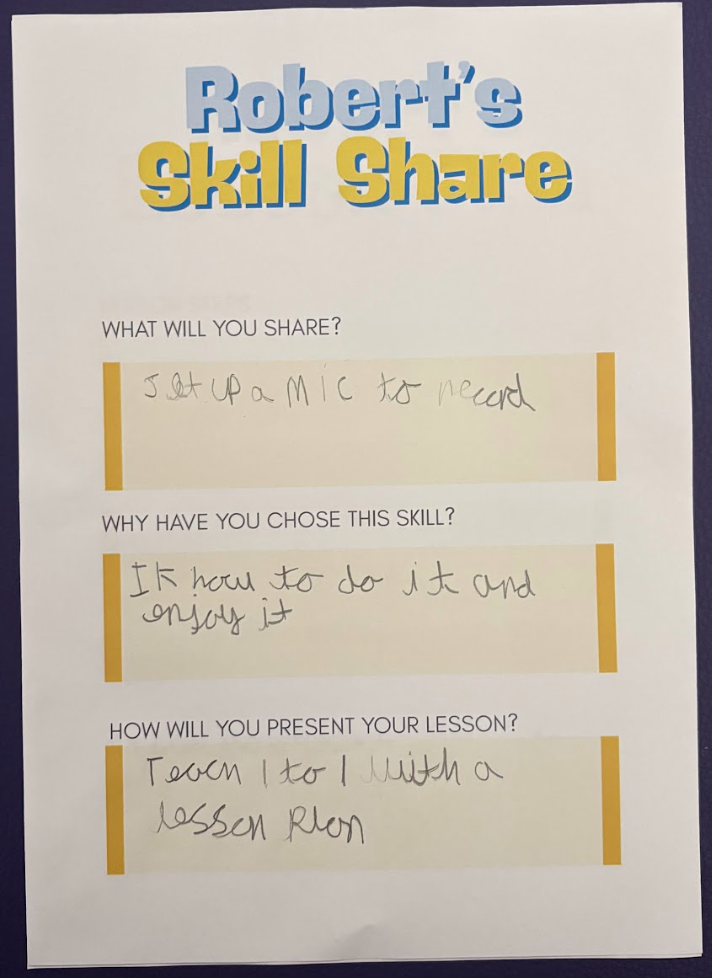 Robert's
Skill Share
WHAT WILL YOU SHARE?
Set up a MIC to record
WHY HAVE YOU CHOSE THIS SKILL?
IK how to do it and
enjoy it
HOW WILL YOU PRESENT YOUR LESSON?
Teach 1 to 1 with a
lesson Plan